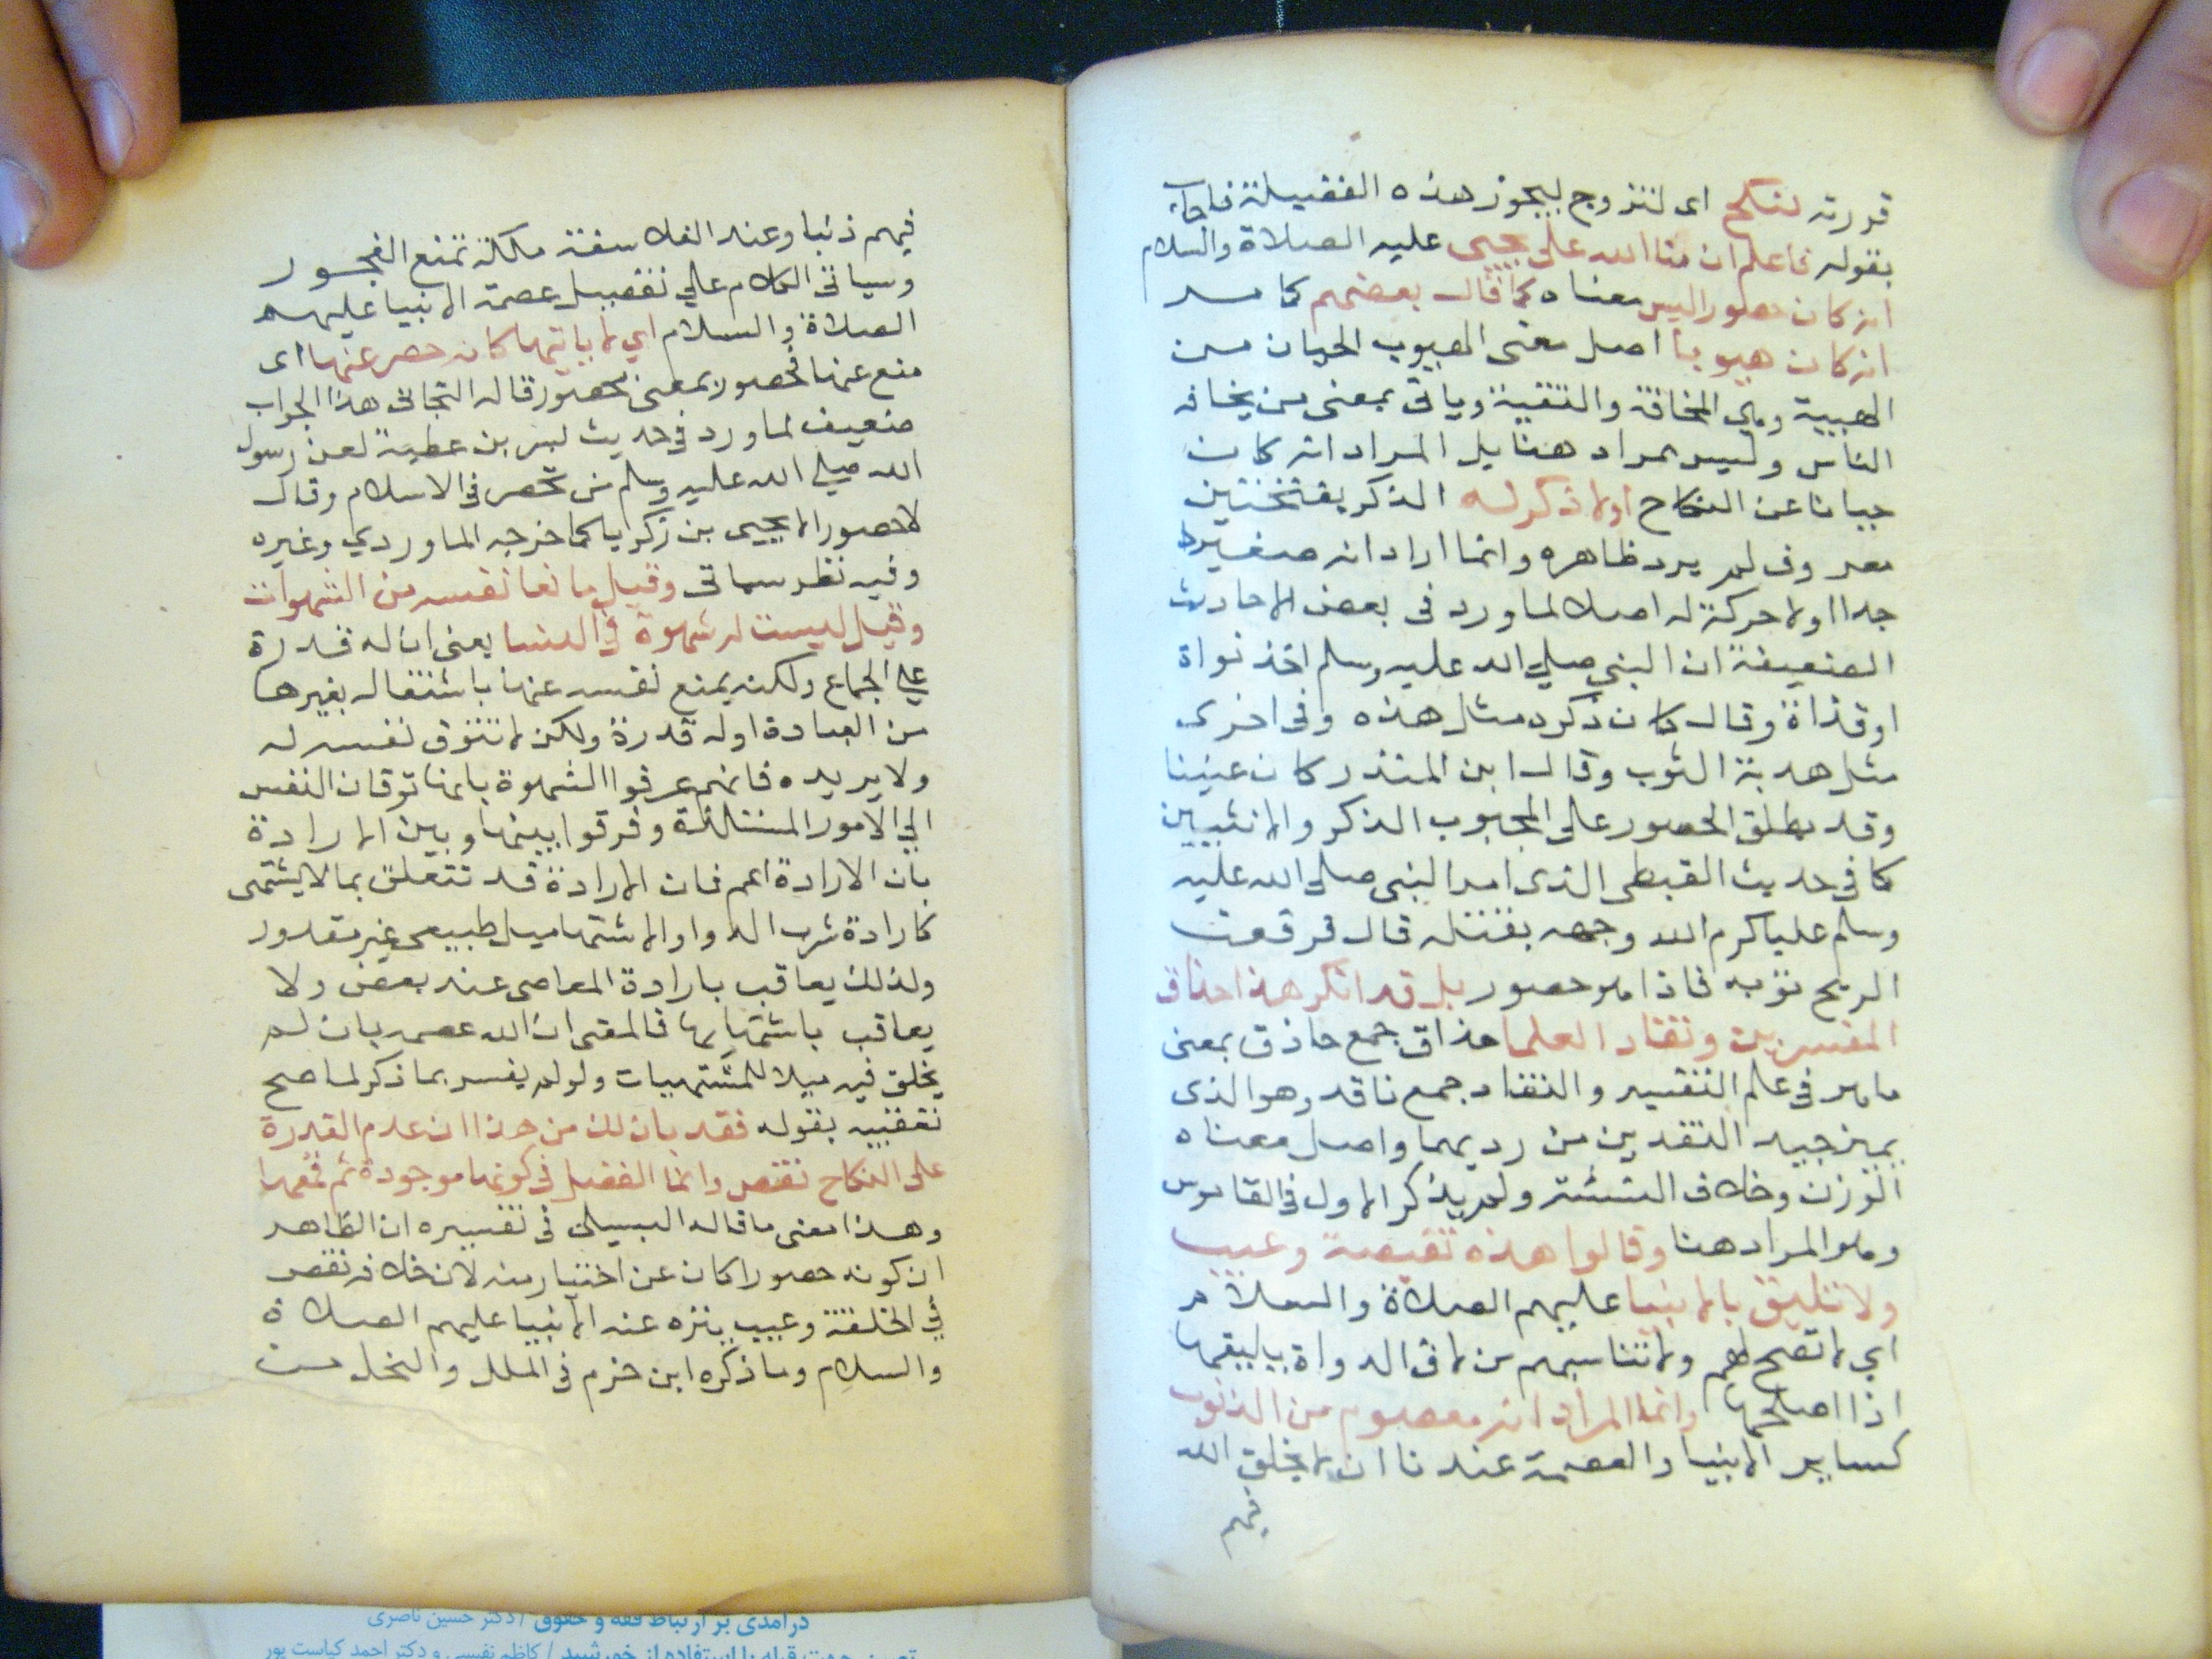 قررته لنكح اى لنتزوج ليجوز هذه الفضيلة فاجاب
بقوله فاعلم ان ثنا الله على يحيى عليه الصلاة والسلام
انه كان حصورا ليس معناه كما قال بعضهم كا مر
انه كان هيوبا اصل معنى الهيوب الجبان من
الهيبة وهي المخافة والتقية وياتى بمعنى من يخافه
الناس وليس بمراد هنا بل المراد انه كان
جبانا عن النكاح اولا ذكر له الذكر بفتحتين
معروف لم يرد ظاهره وانما اراد انه صغير
جدا اولا حركة له اصلا لما ورد فى بعض الاحاديث
الضعيفة ان النبى صلى الله عليه وسلم اخذ نواة
او قذاة وقال كان ذكره مثل هذه وفى اخرى
مثل هدبة الثوب وقال ابن المنذر كان عنينا
وقد يطلق الحصور على المجبوب الذكر والانثيين
كما فى حديث القبطى الذى امر النبى صلى الله عليه
وسلم عليا كرم الله وجهه بقتله قال فرفعت
الريح ثوبه فاذا هو حصور بل قد انكر هذا حذاق
المفسرين ونقاد العلما حذاق جمع حاذق بمعنى
ماهر فى علم التفسير والنقاد جمع ناقد وهو الذى
يميز جيد النقدين من رديهما واصل معناه
الوزن وخلاف النسئة ولم يذكر الاول فى القاموس
وهو المراد هنا وقالوا هذه نقيصة وعيب
ولا تليق بالانبيا عليهم الصلاة والسلام
اي لا تصح لهم ولا تناسبهم من لاق الدواة يليقها
اذا اصلحها وانما المراد انه معصوم من الذنوب
كساير الانبيا والعصمة عندنا ان لا يخلق الله
فيهم
فيهم ذنبا وعند الفلاسفة ملكة تمنع الفجور
وسياتى الكلام علي تفصيل عصمة الانبيا عليهم
الصلاة والسلام اي لا ياتيها كانه حصر عنها اى
منع عنها فحصور بمعنى محصور قاله التجانى هذا الجواب
ضعيف لما ورد فى حديث بن عطية لعن رسول
الله صلي الله عليه وسلم من تحصر فى الاسلام وقال
لا حصور الا يحيى بن زكريا كما خرجه الماوردي وغيره
وفيه نظر سياتى وقيل مانعا نفسه من الشهوات
وقيل ليست له شهوة فى النسا يعنى ان له قدرة
علي الجماع ولكنه يمنع نفسه عنها باشتغاله بغيرها
من العبادة اوله قدرة ولكن لا تتوق نفسه له
ولا يريده فانهم عرفوا الشهوة بانها توقان النفس
الي الامور المستلذة وفرقوا بينها وبين الارادة
بان الارادة اعم فان الارادة قد تتعلق بما لا يشتهى
كارادة شرب الدوا والاشتها ميل طبيعى غير مقدور
ولذلك يعاقب بارادة المعاصى عند بعض ولا
يعاقب باشتهايها فالمعنى ان الله عصمه بان لم
يخلق فيه ميلا للمشتهيات ولو لم يفسر بما ذكر لما صح
تعقيبه بقوله فقد بان لك من هذا ان عدم القدرة
على النكاح نقص وانما الفضل فى كونها موجودة ثم قمعها
وهذا معنى ما قاله البسيلى فى تفسيره ان الظاهر
ان كونه حصورا كان عن اختيار منه لان خلافه نقص
فى الخلقة وعيب ينزه عنه الانبيا عليهم الصلاة
والسلام وما ذكره ابن حزم فى الملل والنحل من
درآمدی بر ارتباط فقه و حقوق / دکتر حسین ناصری
قبله با استفاده از خورشید / کاظم نفیسی و دکتر احمد کیاست پور